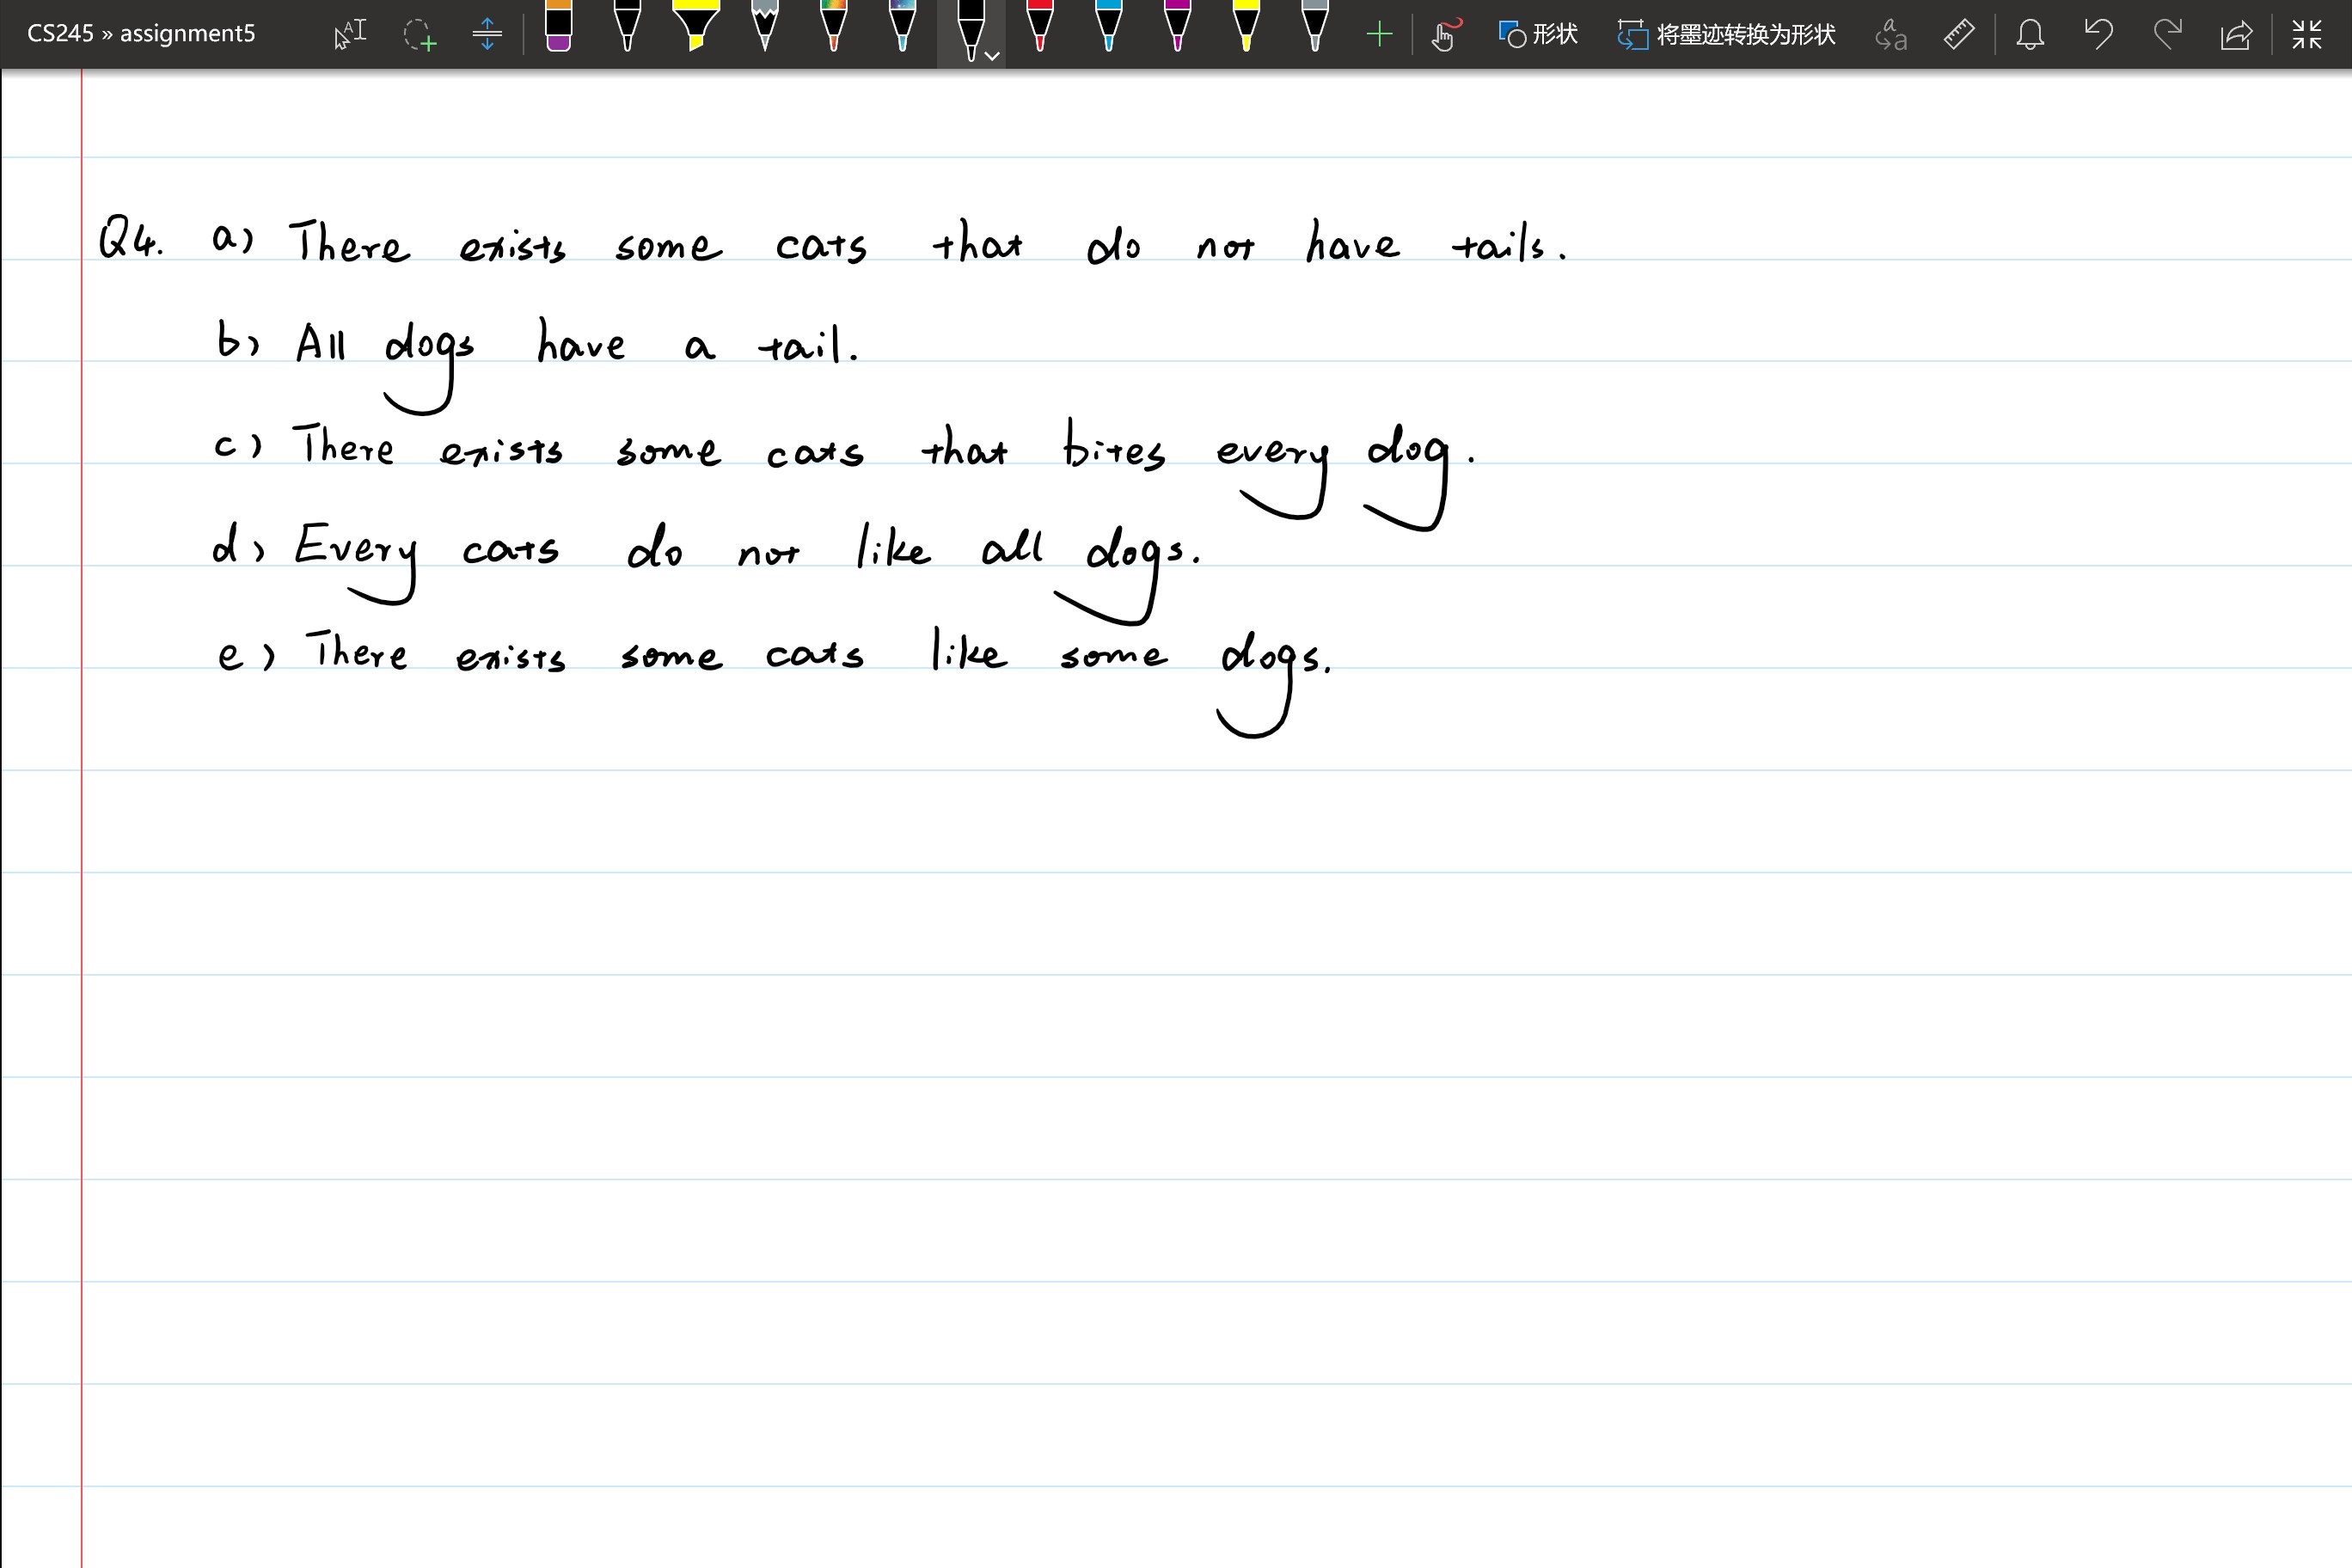 CS245 » assignment5
形状
将墨迹转换为形状
Q4. a) There exists some cats that do not have tails.
b) All dogs have a tail.
c) There exists some cats that bites every dog.
d) Every cats do not like all dogs.
e) There exists some cats like some dogs.